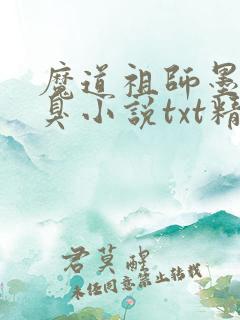 魔道祖师墨
臭小说txt精
君莫醒
未任同意禁止转载